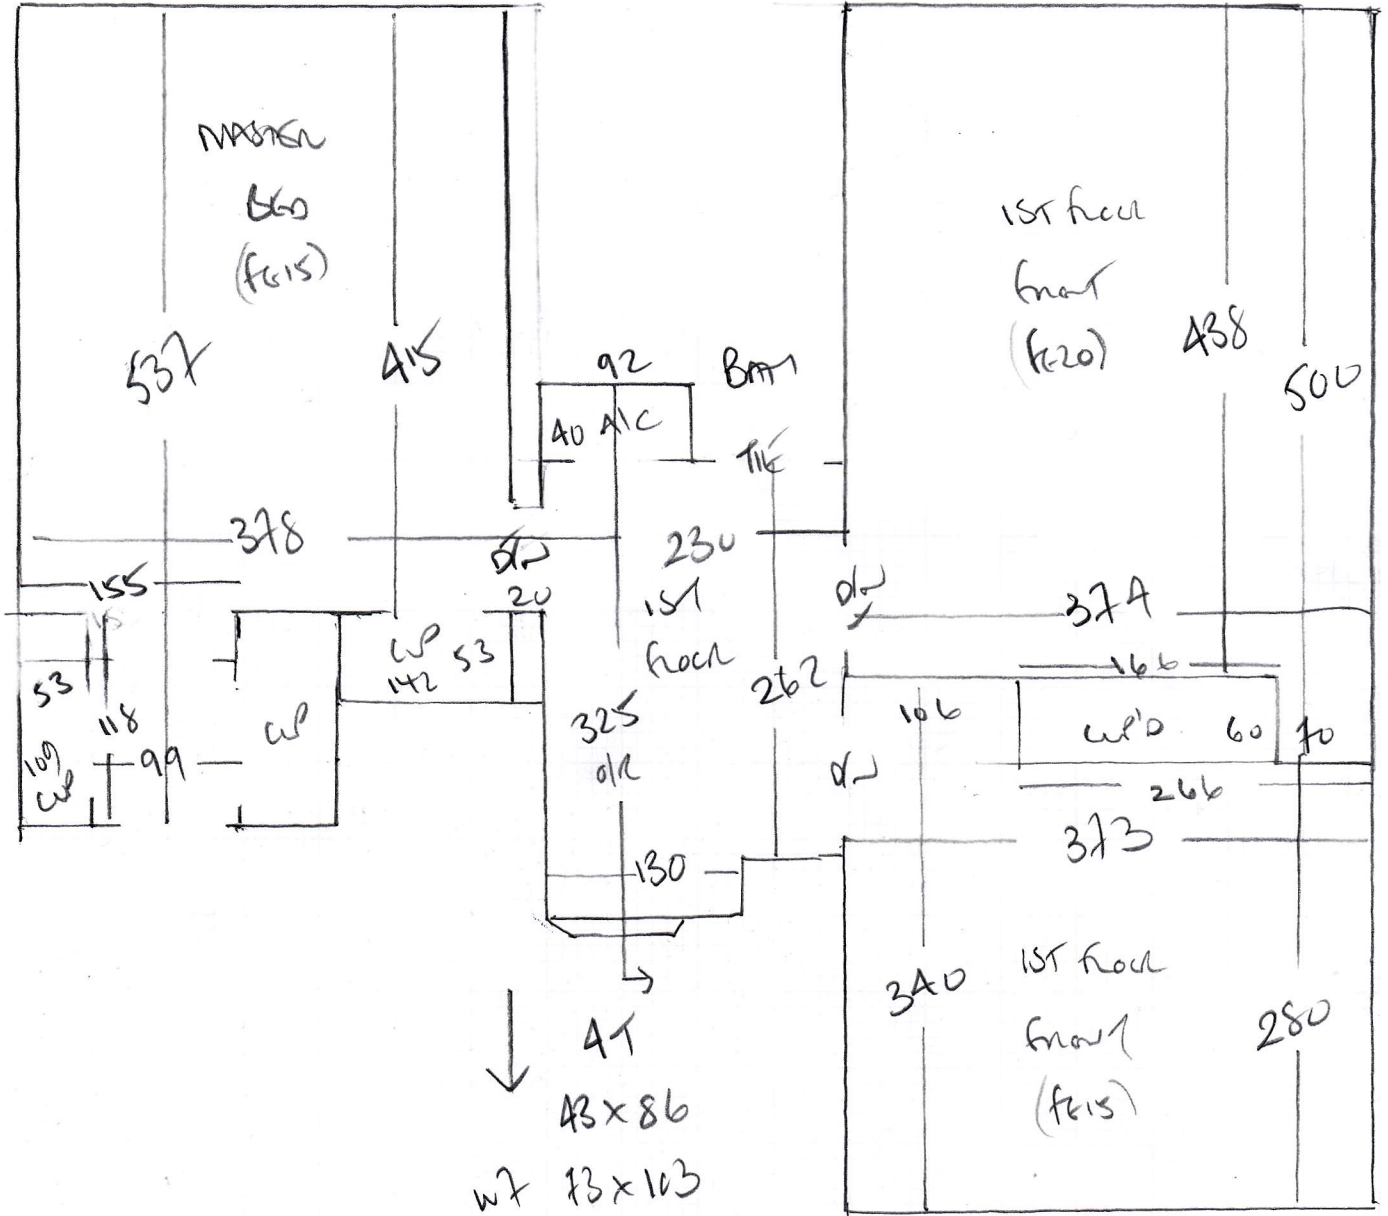 MASTER
BED
(FE15)
537
415
378
155
53
118
109
CUP
99
CUP
CUP
142
53
D/W
20
92
40 A/C
BATH
TILE
230
1ST
FLOOR
262
325
O/R
130
4T
43 x 86
W7 73 x 103
1ST FLOOR
FRONT
(FE20)
438
500
D/W
374
166
106
CUP'D
60
70
D/W
266
373
340
1ST FLOOR
FRONT
(FE15)
280